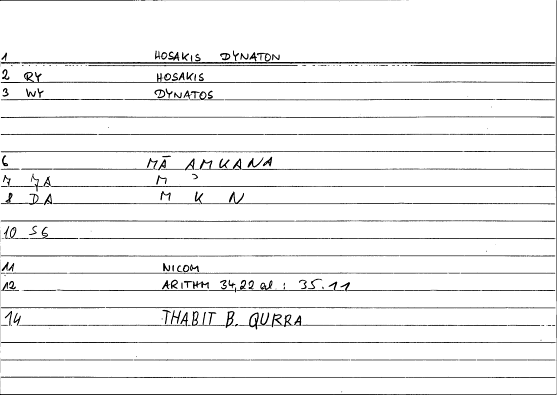 1 HOSAKIS DYNATON
2 RY HOSAKIS
3 WY DYNATOS
6 MĀ AMKANA
7 JA M ʾ
8 DA M K N
10 S6
11 NICOM
12 ARITHM 34,22 al : 35.11
14 THABIT B. QURRA